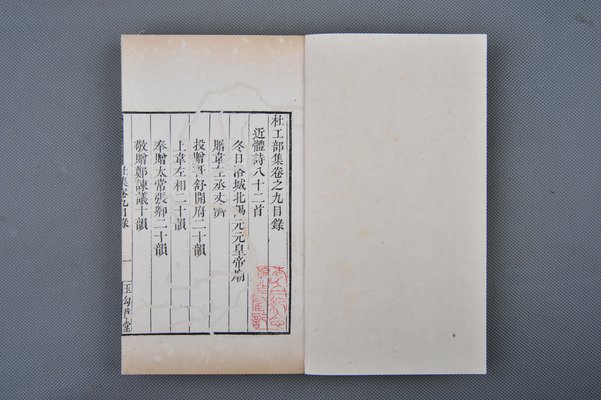 杜工部集卷之九目錄
近體詩八十二首
冬日洛城北謁元元皇帝廟
贈韋左丞丈濟
投贈哥舒開府二十韻
上韋左相二十韻
奉贈太常張卿二十韻
敬贈鄭諫議十韻
杜集卷九目錄
一
玉勾草堂